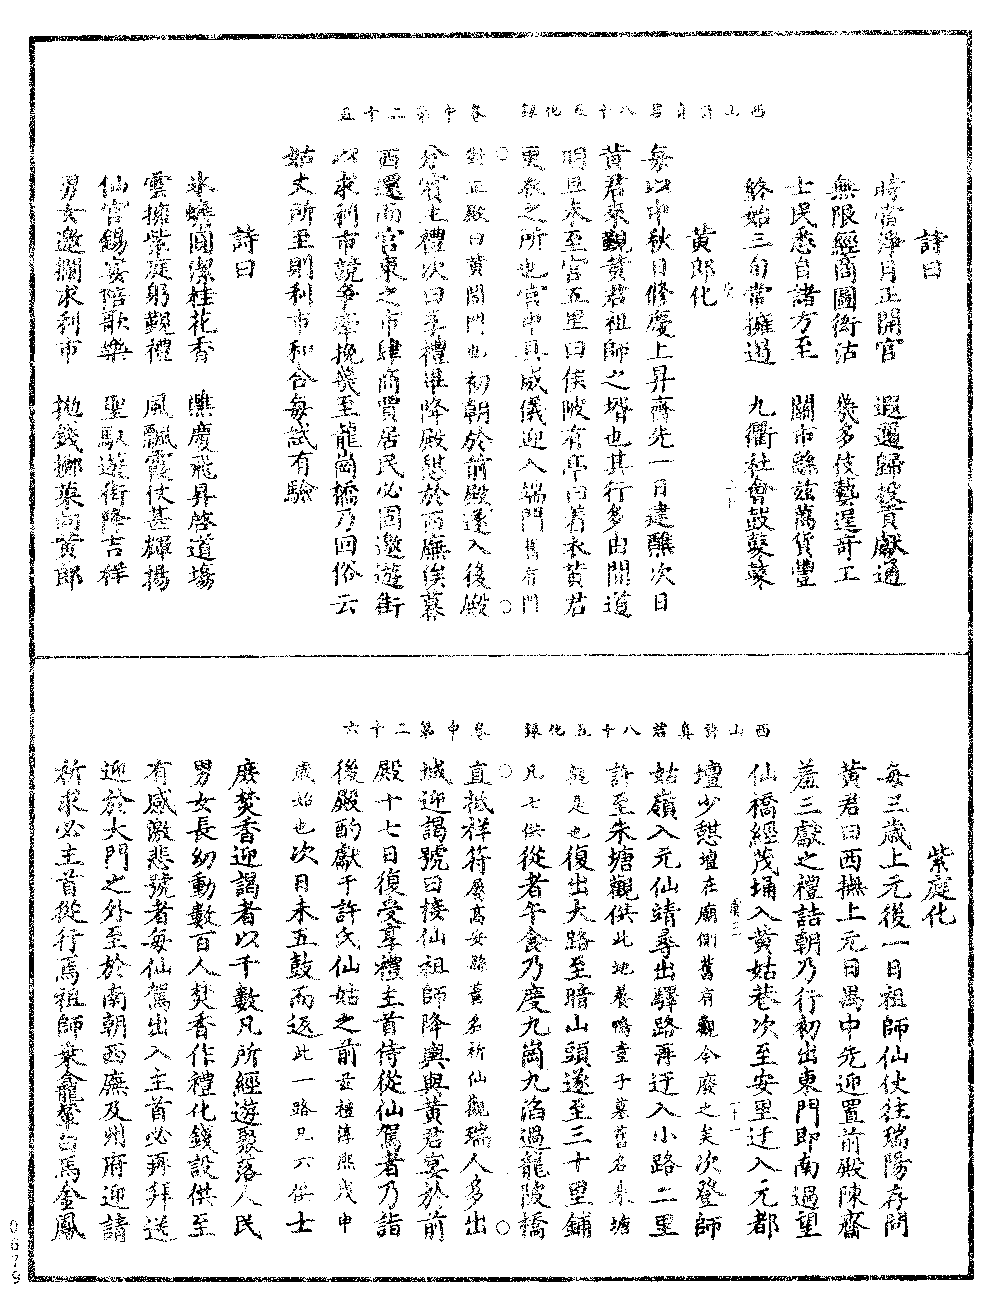 詩曰
時當淨月正開宮　遐邇歸投貢獻通
無限經商圖衒沽　幾多伎藝逞奇工
士民悉自諸方至　關市緜茲萬貨豐
終始三旬常擁過　九衢社會鼓鼕鼕
黃郎化
每以中秋日修慶上昇齋先一日建醮次日
黃君來覲黃君祖師之壻也其行多由間道
明旦未至宮五里曰侯陂有亭曰著衣黃君
更衣之所也宮中具威儀迎入端門舊有門
對正殿曰黃閤門也初朝於前殿遂入後殿
分賓主禮次曰享禮畢降殿憇於西廡俟暮
西還而宮東之市肆商賈居民必固邀遊街
以求利市競爭牽挽幾至龍崗橋乃回俗云
姑丈所至則利市和合每試有驗
詩曰
冰蟾圓潔桂花香　醮慶飛昇啓道場
雲擁紫庭躬覲禮　風飄霞仗甚輝揚
仙官錫宴陪歌樂　聖馭遊街降吉祥
男女邀攔求利市　拋錢擲菓向黃郎
西山許真君八十五化錄　卷中第二十五
紫庭化
每三歲上元後一日祖師仙仗往瑞陽存問
黃君曰西撫上元日禺中先迎置前殿陳齋
羞三獻之禮詰朝乃行初出東門即南過望
仙橋經茂埇入黃姑巷次至安里迂入元都
壇少憇壇在廟側舊有觀今廢之矣次登師
姑嶺入元仙靖尋出驛路再迂入小路二里
許至朱塘觀供此地養鴨童子墓舊名朱塘
觀是也復出大路至暗山頭遂至三十里鋪
凡七供從者午食乃度九崗九滔過龍陂橋
直抵祥符屬高安縣黃名祈仙觀瑞人多出
城迎謁號曰接仙祖師降輿與黃君宴於前
殿十七日復受享禮主首侍從仙駕者乃詣
後殿酌獻于許氏仙姑之前茲禮淳熙戊申
歲始也次日未五鼓而返此一路凡六供士
庶焚香迎謁者以千數凡所經遊聚落人民
男女長幼動數百人焚香作禮化錢設供至
有感激悲號者每仙駕出入主首必再拜送
迎於大門之外至於南朝西廡及州府迎請
祈求必主首從行焉祖師乘龕輦白馬金鳳
西山許真君八十五化錄　卷中第二十六
0679